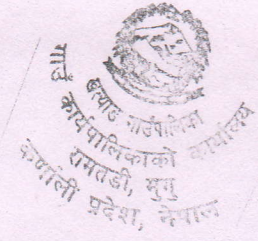 खत्याड गाउँपालिका
गाउँ कार्यपालिकाको कार्यालय
रामतडी, मुगु
कर्णाली प्रदेश, नेपाल